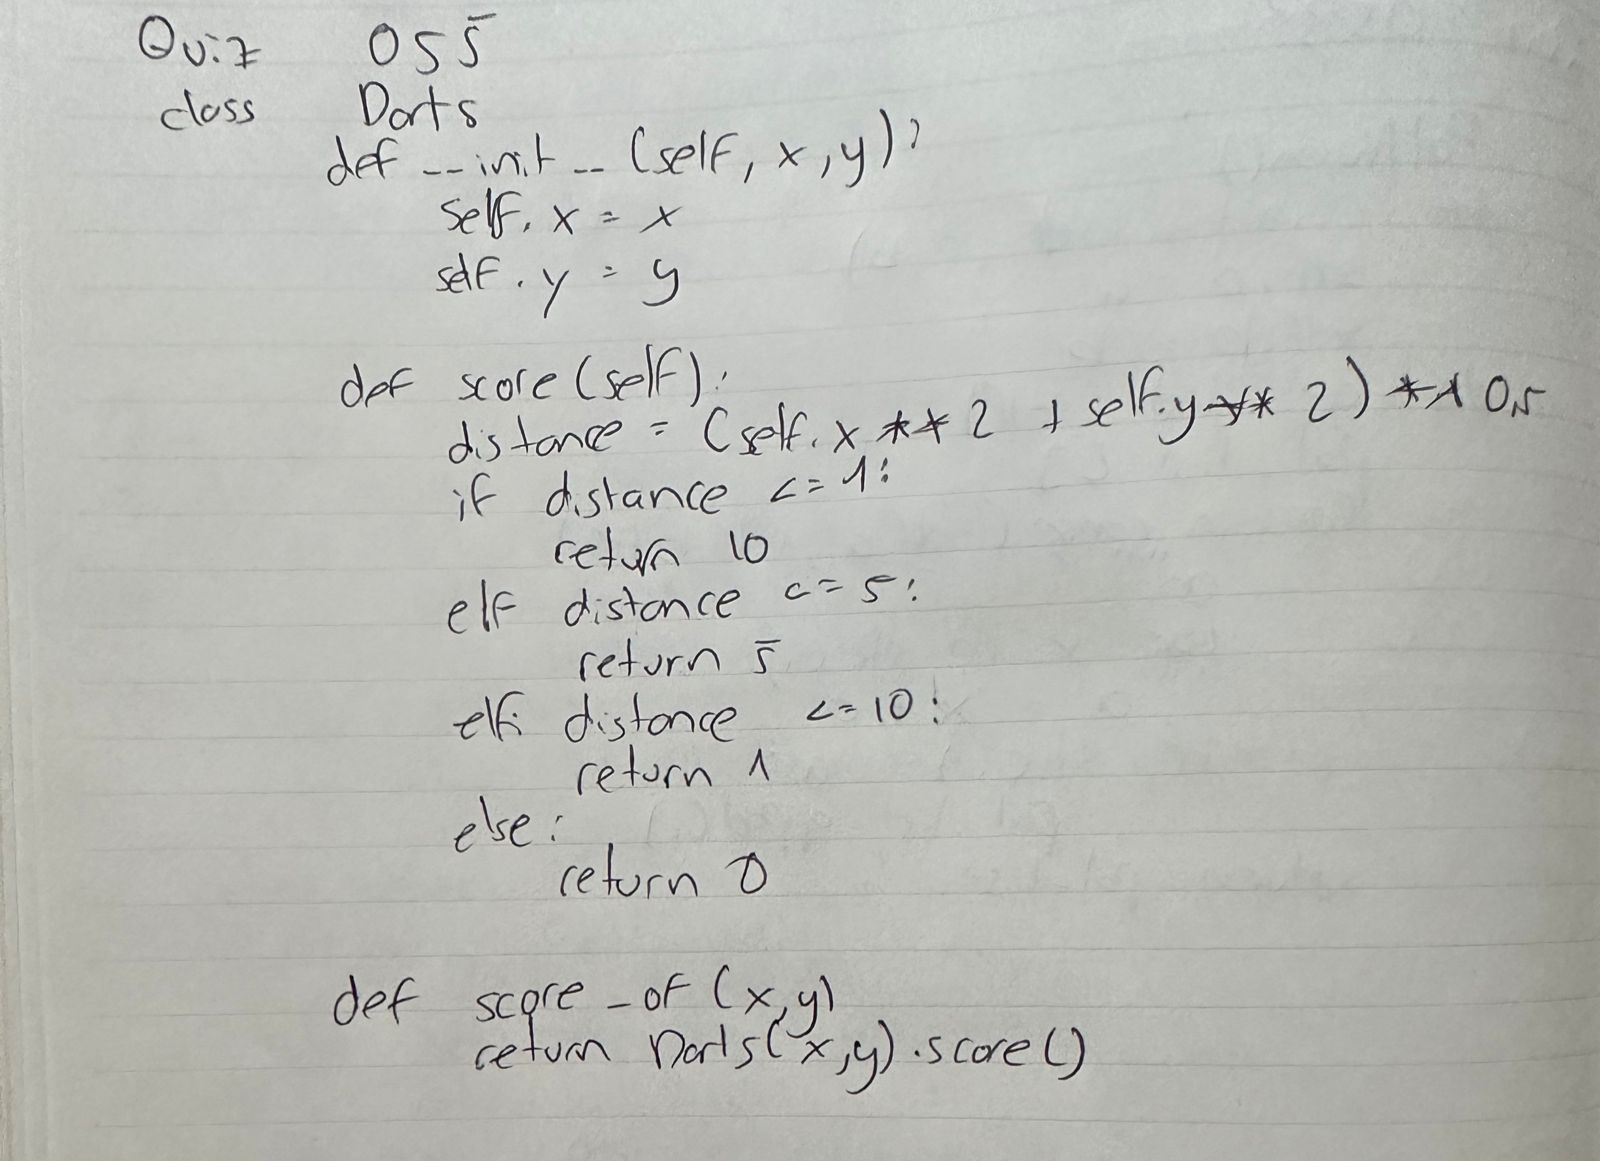 Quiz 055
class Darts
def __init__(self, x, y):
self.x = x
self.y = y
def score(self):
distance = (self.x ** 2 + self.y ** 2) ** 0.5
if distance <= 1:
return 10
elf distance <= 5:
return 5
elf: distance <= 10:
return 1
else:
return 0
def score_of(x,y)
return Darts(x,y).score()